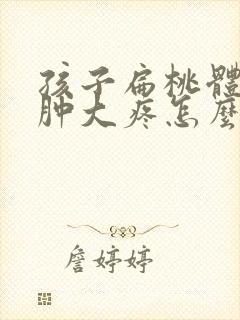 孩子扁桃體
肿大疼怎麼
詹婷婷